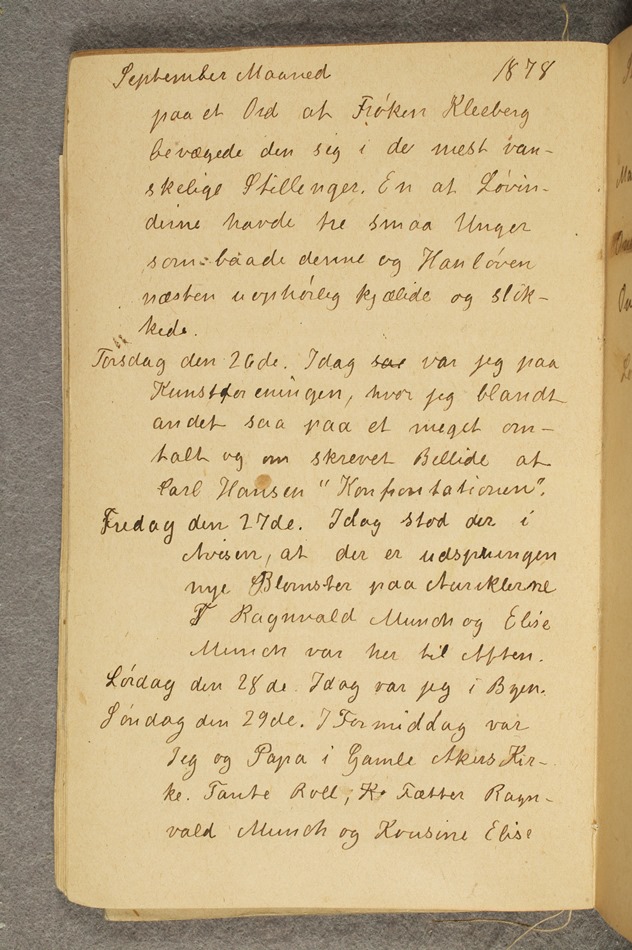 September Maaned 1878
paa et Ord af Frøken Kleeberg
bevægede den sig i de mest van-
skelige Stillenger. En af Løvin-
derne havde tre smaa Unger
som baade denne og Hanløven
næsten uophørlig kjælede og slik-
kede.
Torsdag den 26de. Idag saa var jeg paa
Kunstforeningen, hvor jeg blandt
andet saa paa et meget om-
talt og om skrevet Billede af
Carl Hansen "Konfrontationen".
Fredag den 27de. Idag stod der i
Avisen, at der er udsprungen
nye Blomster paa Auriklerne
F Ragnvald Munch og Elise
Munch var her til Aften.
Lørdag den 28de Idag var jeg i Byen.
Søndag den 29de. I Formiddag var
Jeg og Papa i Gamle Akers Kir-
ke. Tante Roll, K Fætter Ragn-
vald Munch og Kousine Elise